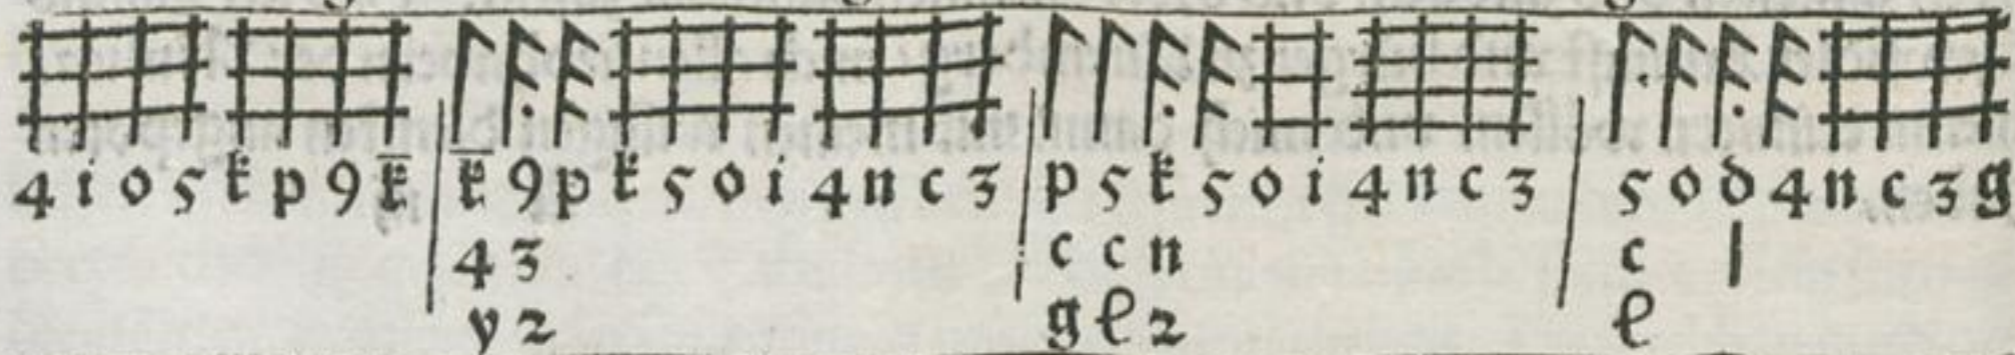 4 i o 5 k p 9 k̄ k̄ 9 p k 5 o i 4 n c 3 p 5 k 5 o i 4 n c 3 5 o d 4 n c 3 g
4 3 c c n c l
y 2 g ł 2 ł